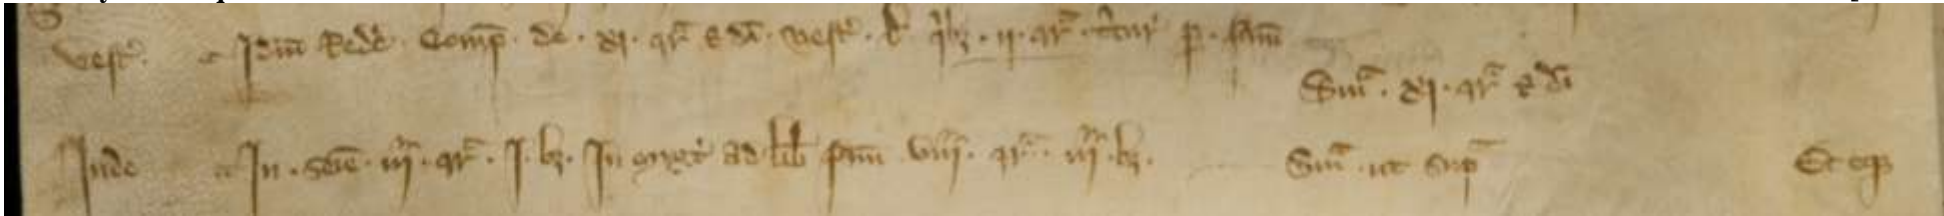 vesc̃. Idm̃ Redd̃. Comp̃. de. xj. qr̃. & dĩ. vesc̃. de q̃lz. ij. qr̃. p̃. fam̃
Sm̃ᵃ. xj. qr̃ & dĩ
Inde In. sem̃. iij. qr̃. j. bz. In mixt̃ ad lib̃ fam̃ viij. qr̃. iij. bz. Sm̃ᵃ. ut sup̃ᵃ Et eqᵉ